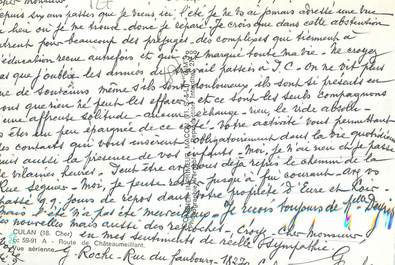 cher monsieur,
depuis six ans passés que je viens ici l'été je ne vous ai jamais adressé une vue
du lieu où je me trouve, donc je répare. Je crois que dans cette abstention
entrent pour beaucoup des préjugés, des complexes qui tiennent à
l'éducation reçue autrefois et qui ont marqué toute ma vie. Ne croyez
pas que j'oublie les années de travail passées à J.C. On ne vit pas
que de souvenirs même s'ils sont douloureux, ils sont si présents en
nous que rien ne peut les effacer et ce sont les seuls compagnons
d'une affreuse solitude - aucun échange - rien, le vide absolu -
Vous êtes un peu épargné de ce côté. Votre activité vous permettant
des contacts qui vous insèrent obligatoirement dans la vie quotidienne
puis aussi la présence de vos enfants. Moi, je n'ai rien et je passe
de vilaines heures. Peut être avez vous déjà repris le chemin de la
Rue Séguier. Moi, je peux rester jusqu'à fin courant. Avez vous
passé qq. jours de repos dans votre propriété d'Eure et Loir
mais l'été n'a pas été merveilleux. Je reçois toujours de
des nouvelles mais aussi des reproches. Croyez, Cher Monsieur
en mes sentiments de réelle sympathie.
CULAN (18. Cher)
Cc 59-91 A - Route de Châteaumeillant.
Vue aérienne
G. Roche - Rue du Faubourg - 1827